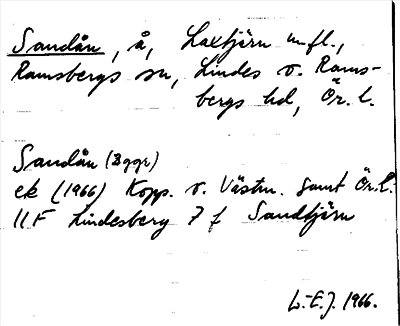 Sandån, å, Laxtjärn m.fl.,
Ramsbergs sn, Lindes o. Rams-
bergs hd, Ör. l.
Sandån (Bggr)
ek (1966) Kopp. o. Västm. samt Ör. l.
11F Lindesberg 7 f Sandtjärn
L.-E.J. 1966.